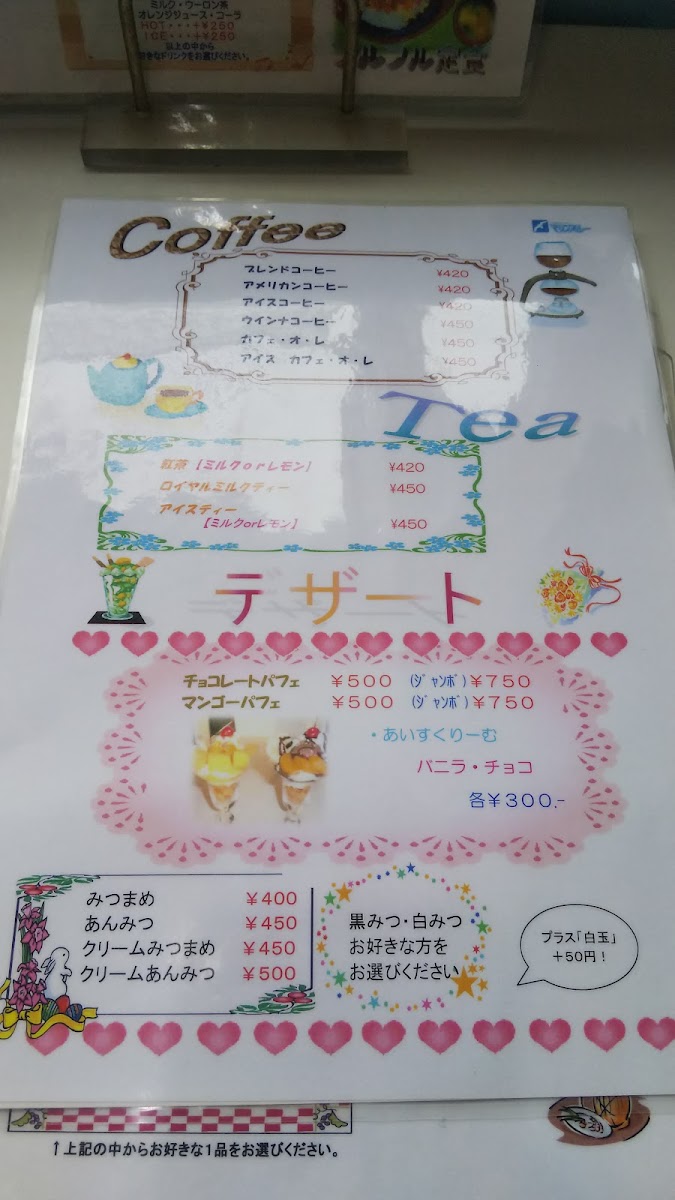 ミルク・ウーロン茶
オレンジジュース・コーラ
HOT・・・+¥250
ICE・・・+¥250
以上の中から
お好きなドリンクをお選びください。
Coffee
ブレンドコーヒー ¥420
アメリカンコーヒー ¥420
アイスコーヒー ¥420
ウインナコーヒー ¥450
カフェ・オ・レ ¥450
アイス カフェ・オ・レ ¥450
Tea
紅茶【ミルクorレモン】 ¥420
ロイヤルミルクティー ¥450
アイスティー
【ミルクorレモン】 ¥450
デザート
チョコレートパフェ ¥500 (ジャンボ)¥750
マンゴーパフェ ¥500 (ジャンボ)¥750
・あいすくりーむ
バニラ・チョコ
各¥300.-
みつまめ ¥400
あんみつ ¥450
クリームみつまめ ¥450
クリームあんみつ ¥500
黒みつ・白みつ
お好きな方を
お選びください
プラス「白玉」
+50円!
↑上記の中からお好きな1品をお選びください。